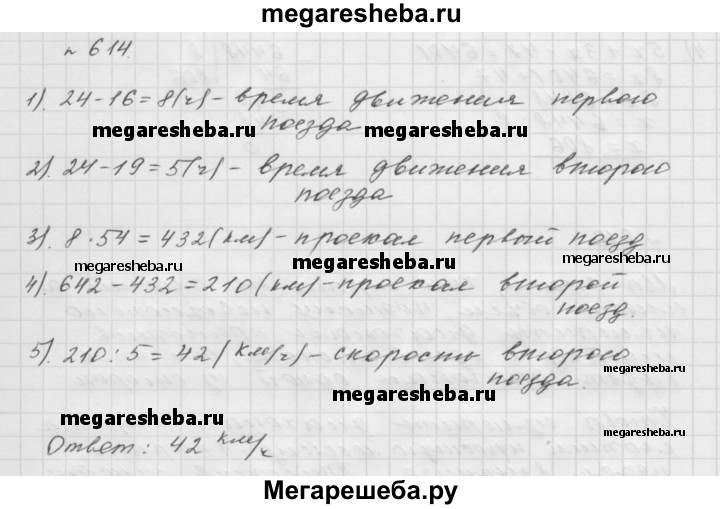 megaresheba.ru
№ 614.
1). 24-16=8(ч)- время движения первого
поезда
megaresheba.ru megaresheba.ru
2). 24-19=5(ч)- время движения второго
поезда
3). 8·54=432(км)-проехал первый поезд
megaresheba.ru megaresheba.ru megaresheba.ru
4). 642-432=210(км)-проехал второй
поезд.
5). 210:5=42(км/ч)- скорость второго
поезда.
megaresheba.ru
megaresheba.ru
megaresheba.ru
Ответ: 42 км/ч
megaresheba.ru
Мегарешеба.ру